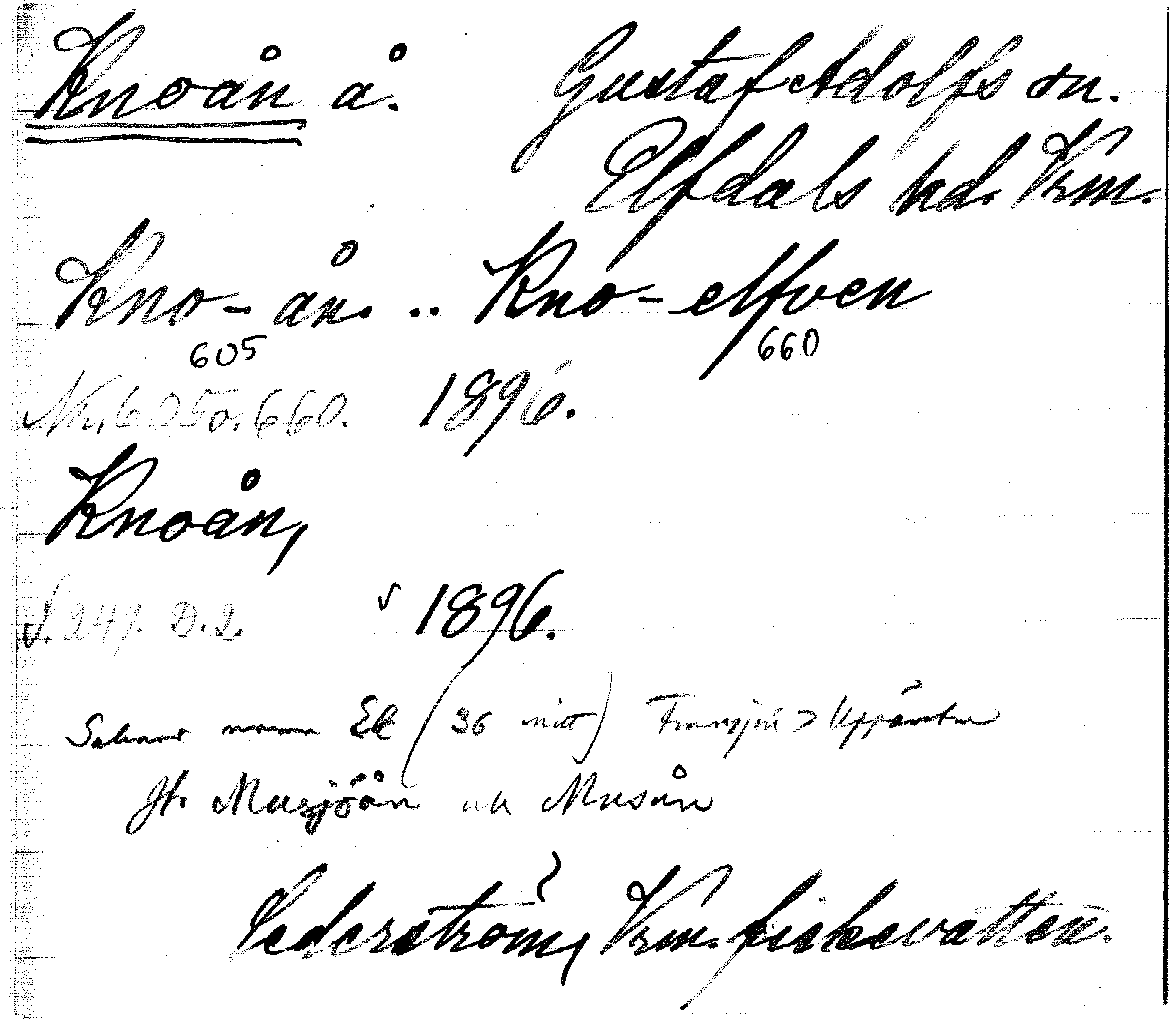 Knoån å. Gustaf Adolfs sn.
Elfdals hd. Vrm.
Kno-ån. .. Kno-elfven
605 660
Nr. 605 o. 660. 1896.
Knoån,
S. 247. D. 2. 1896.
Saknar namn Ek (36 mitt)
Jfr Musjöån och Musån
Cederström, Vrm. fiskevatten.